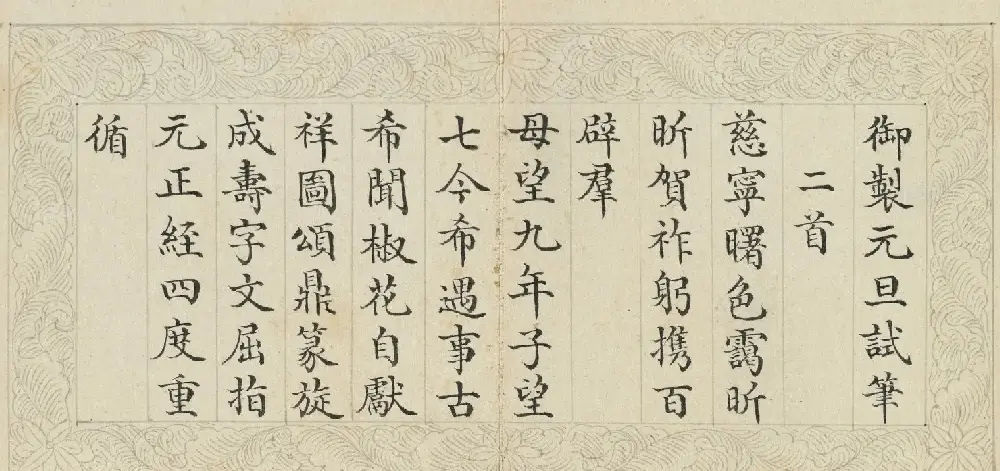 御製元旦試筆
二首
慈寧曙色靄昕
昕賀祚躬攜百
辟羣
母望九年子望
七今希遇事古
希聞椒花自獻
祥圖頌鼎篆旋
成壽字文屈指
元正経四度重
循